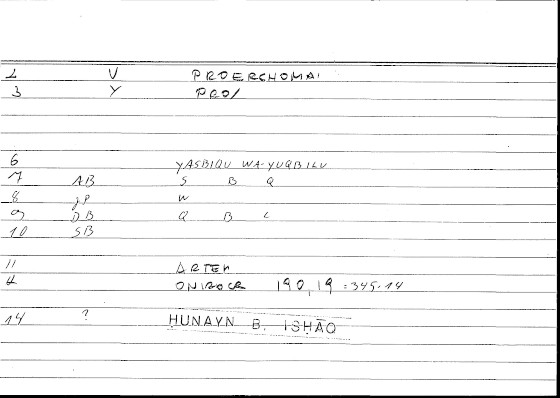 2 V PROERCHOMAI
3 Y PROI
6 YASBIQU WA-YUQBILU
7 AB S B Q
8 JP W
9 DB Q B L
10 SB
11 ARTEM
12 ONIROCR 190,19 = 345.14
14 ? HUNAYN B. ISHAQ